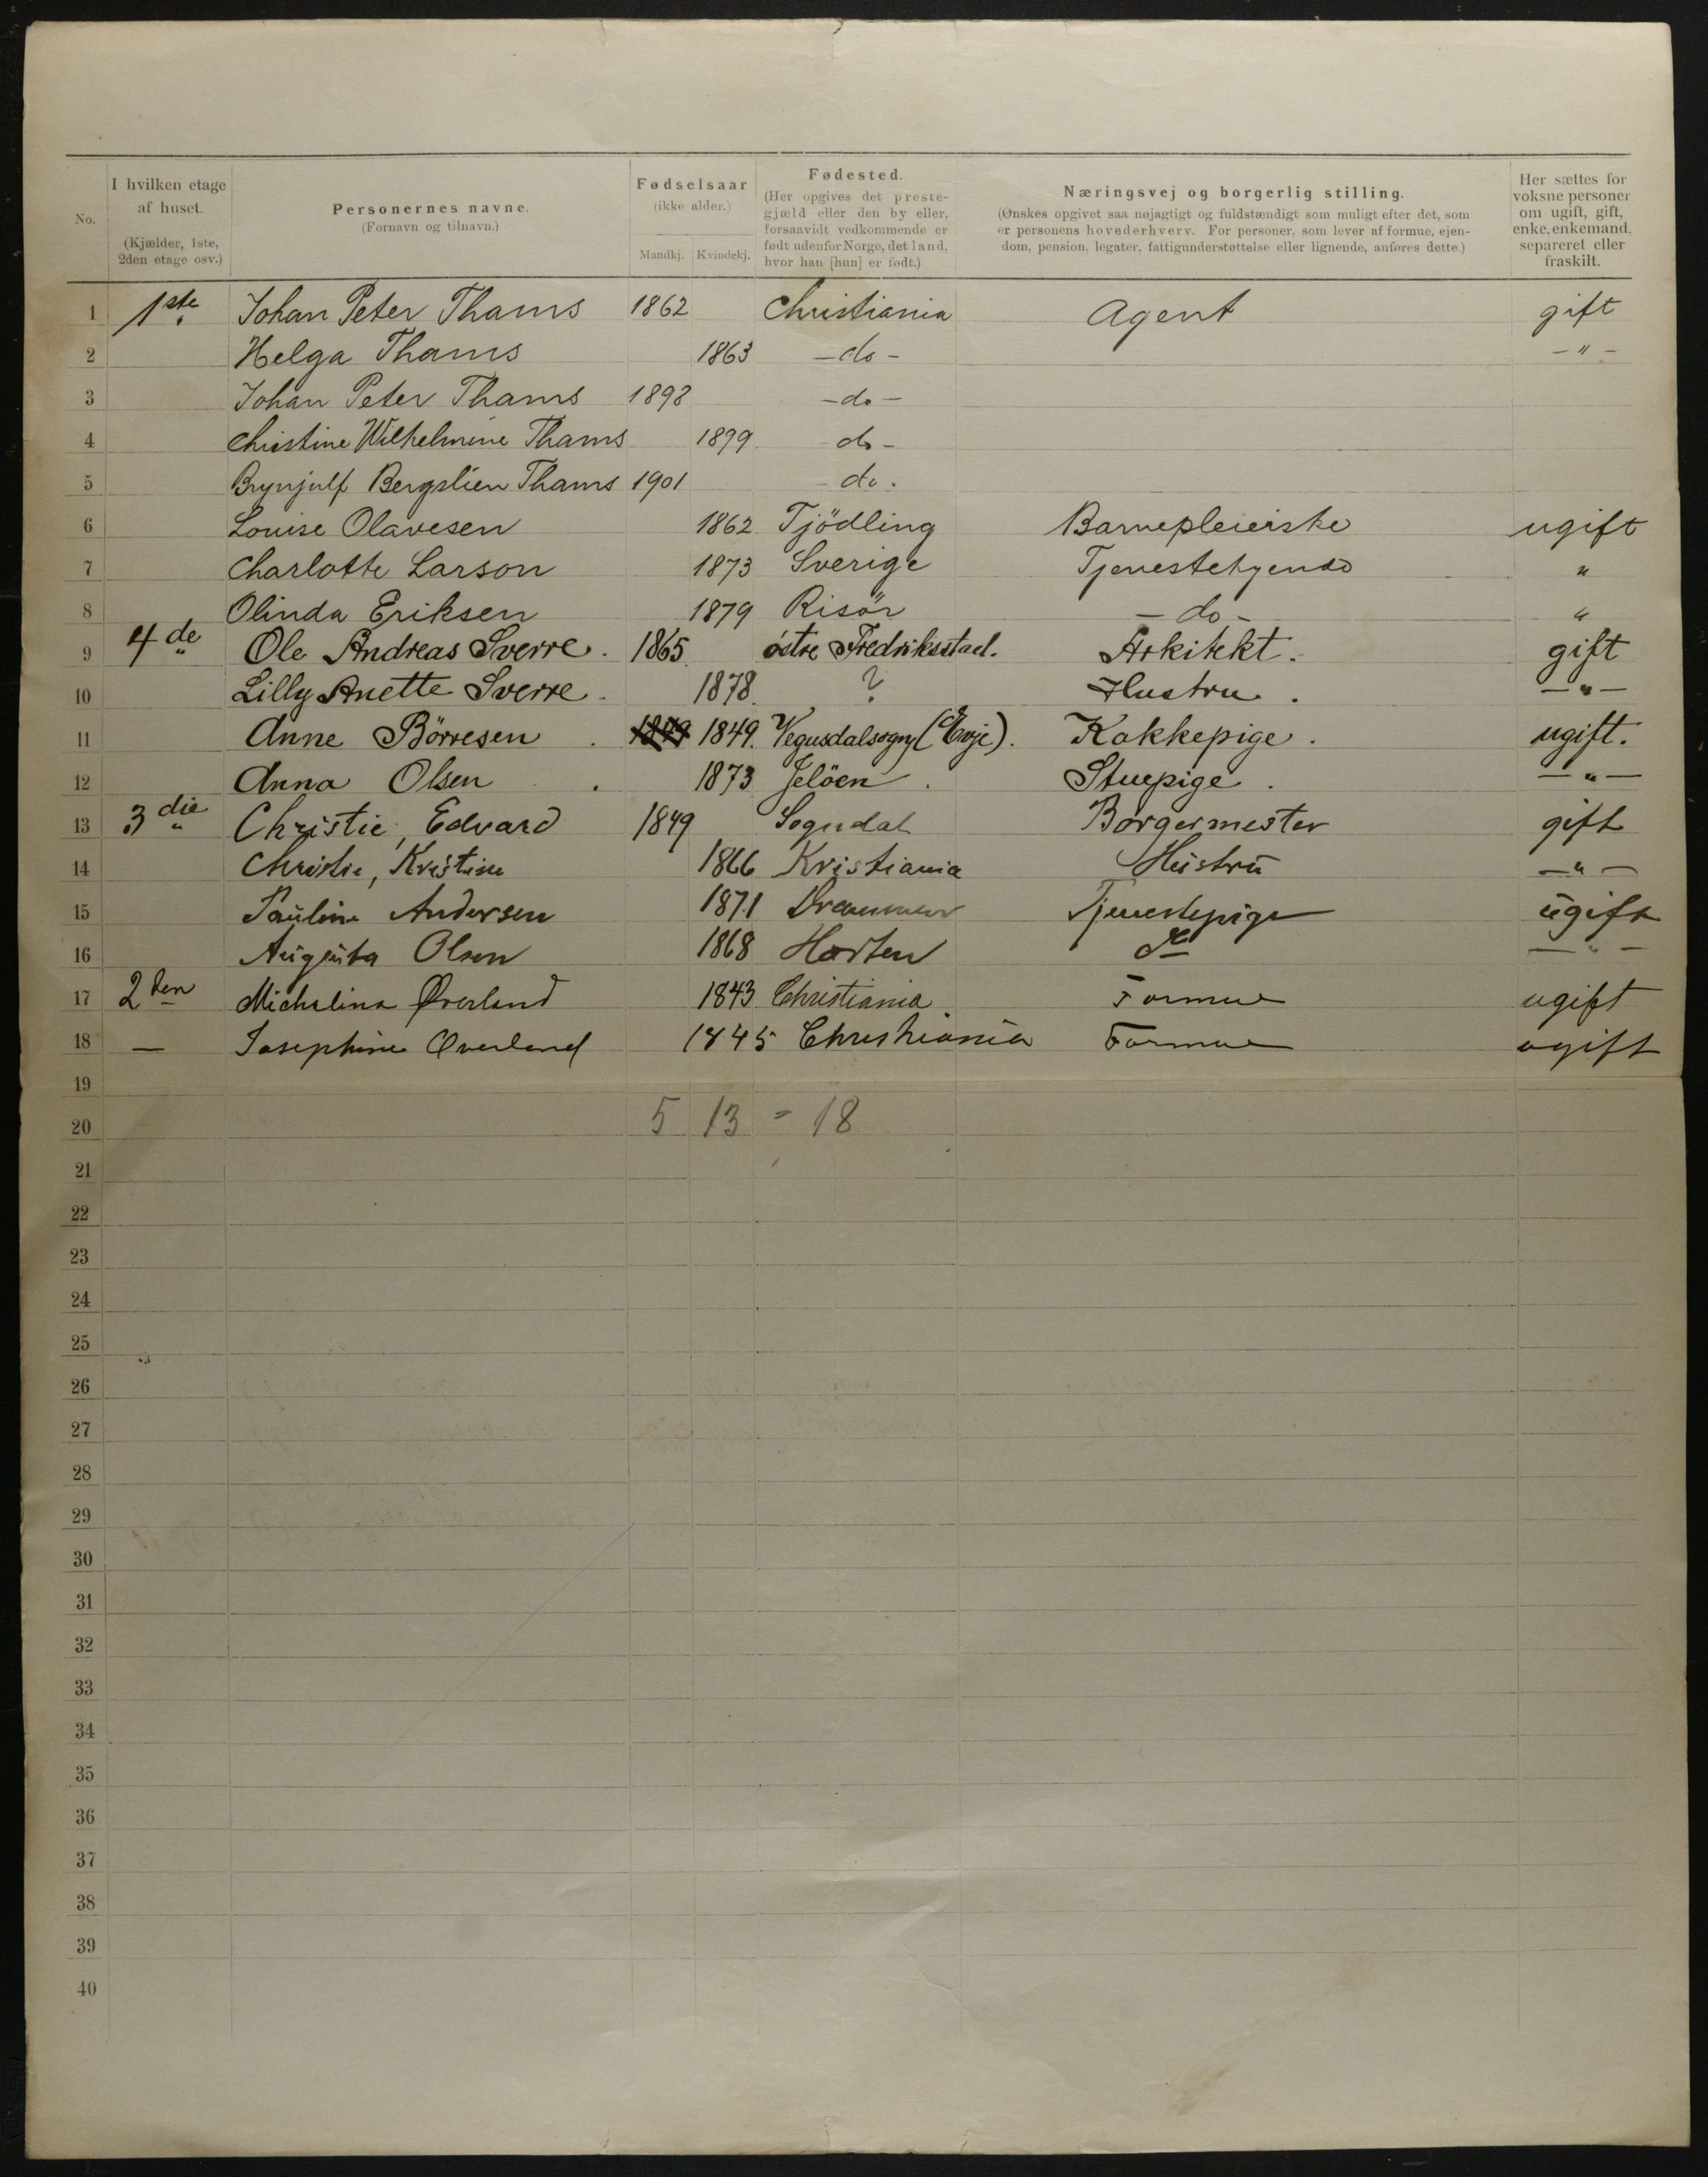 No. | I hvilken etage af huset. (Kjælder, 1ste, 2den etage osv.) | Personernes navne. (Fornavn og tilnavn.) | Fødselsaar (ikke alder.) Mandkj. Kvindekj. | Fødested. (Her opgives det prestegjæld eller den by eller, forsaavidt vedkommende er født udenfor Norge, det land, hvor han [hun] er født.) | Næringsvej og borgerlig stilling. (Ønskes opgivet saa nøjagtigt og fuldstændigt som muligt efter det, som er personens hovederhverv. For personer, som lever af formue, ejendom, pension, legater, fattigunderstøttelse eller lignende, anføres dette.) | Her sættes for voksne personer om ugift, gift, enke, enkemand, separeret eller fraskilt.
1 1ste Johan Peter Thams 1862 Christiania Agent gift
2 Helga Thams 1863 - do - - " -
3 Johan Peter Thams 1898 - do -
4 Christine Wilhelmine Thams 1899 - do -
5 Brynjulf Bergslien Thams 1901 - do.
6 Louise Olavesen 1862 Tjödling Barnepleierske ugift
7 Charlotte Larson 1873 Sverige Tjenestetyende "
8 Olinda Eriksen 1879 Risör - do - "
9 4de " Ole Andreas Sverre. 1865 östre Fredriksstad. Arkitekt. gift
10 Lilly Anette Sverre. 1878. ? Hustru. - " -
11 Anne Börresen. 1849 1849. Vegusdalsogn (Evje). Kokkepige. ugift.
12 Anna Olsen. 1873 Jelöen. Stuepige. - " -
13 3die " Christie, Edvard 1849 Sogndal Borgermester gift
14 Christie, Kristine 1866 Kristiania Hustru - " -
15 Pauline Andersen 1871 Drammen Tjenestepige ugift
16 Augusta Olsen 1868 Horten do - " -
17 2den Michaline Øverland 1843 Christiania Formue ugift
18 — Josephine Øverland 1845 Christiania Formue ugift
19
20 5 13 = 18
21
22
23
24
25
26
27
28
29
30
31
32
33
34
35
36
37
38
39
40